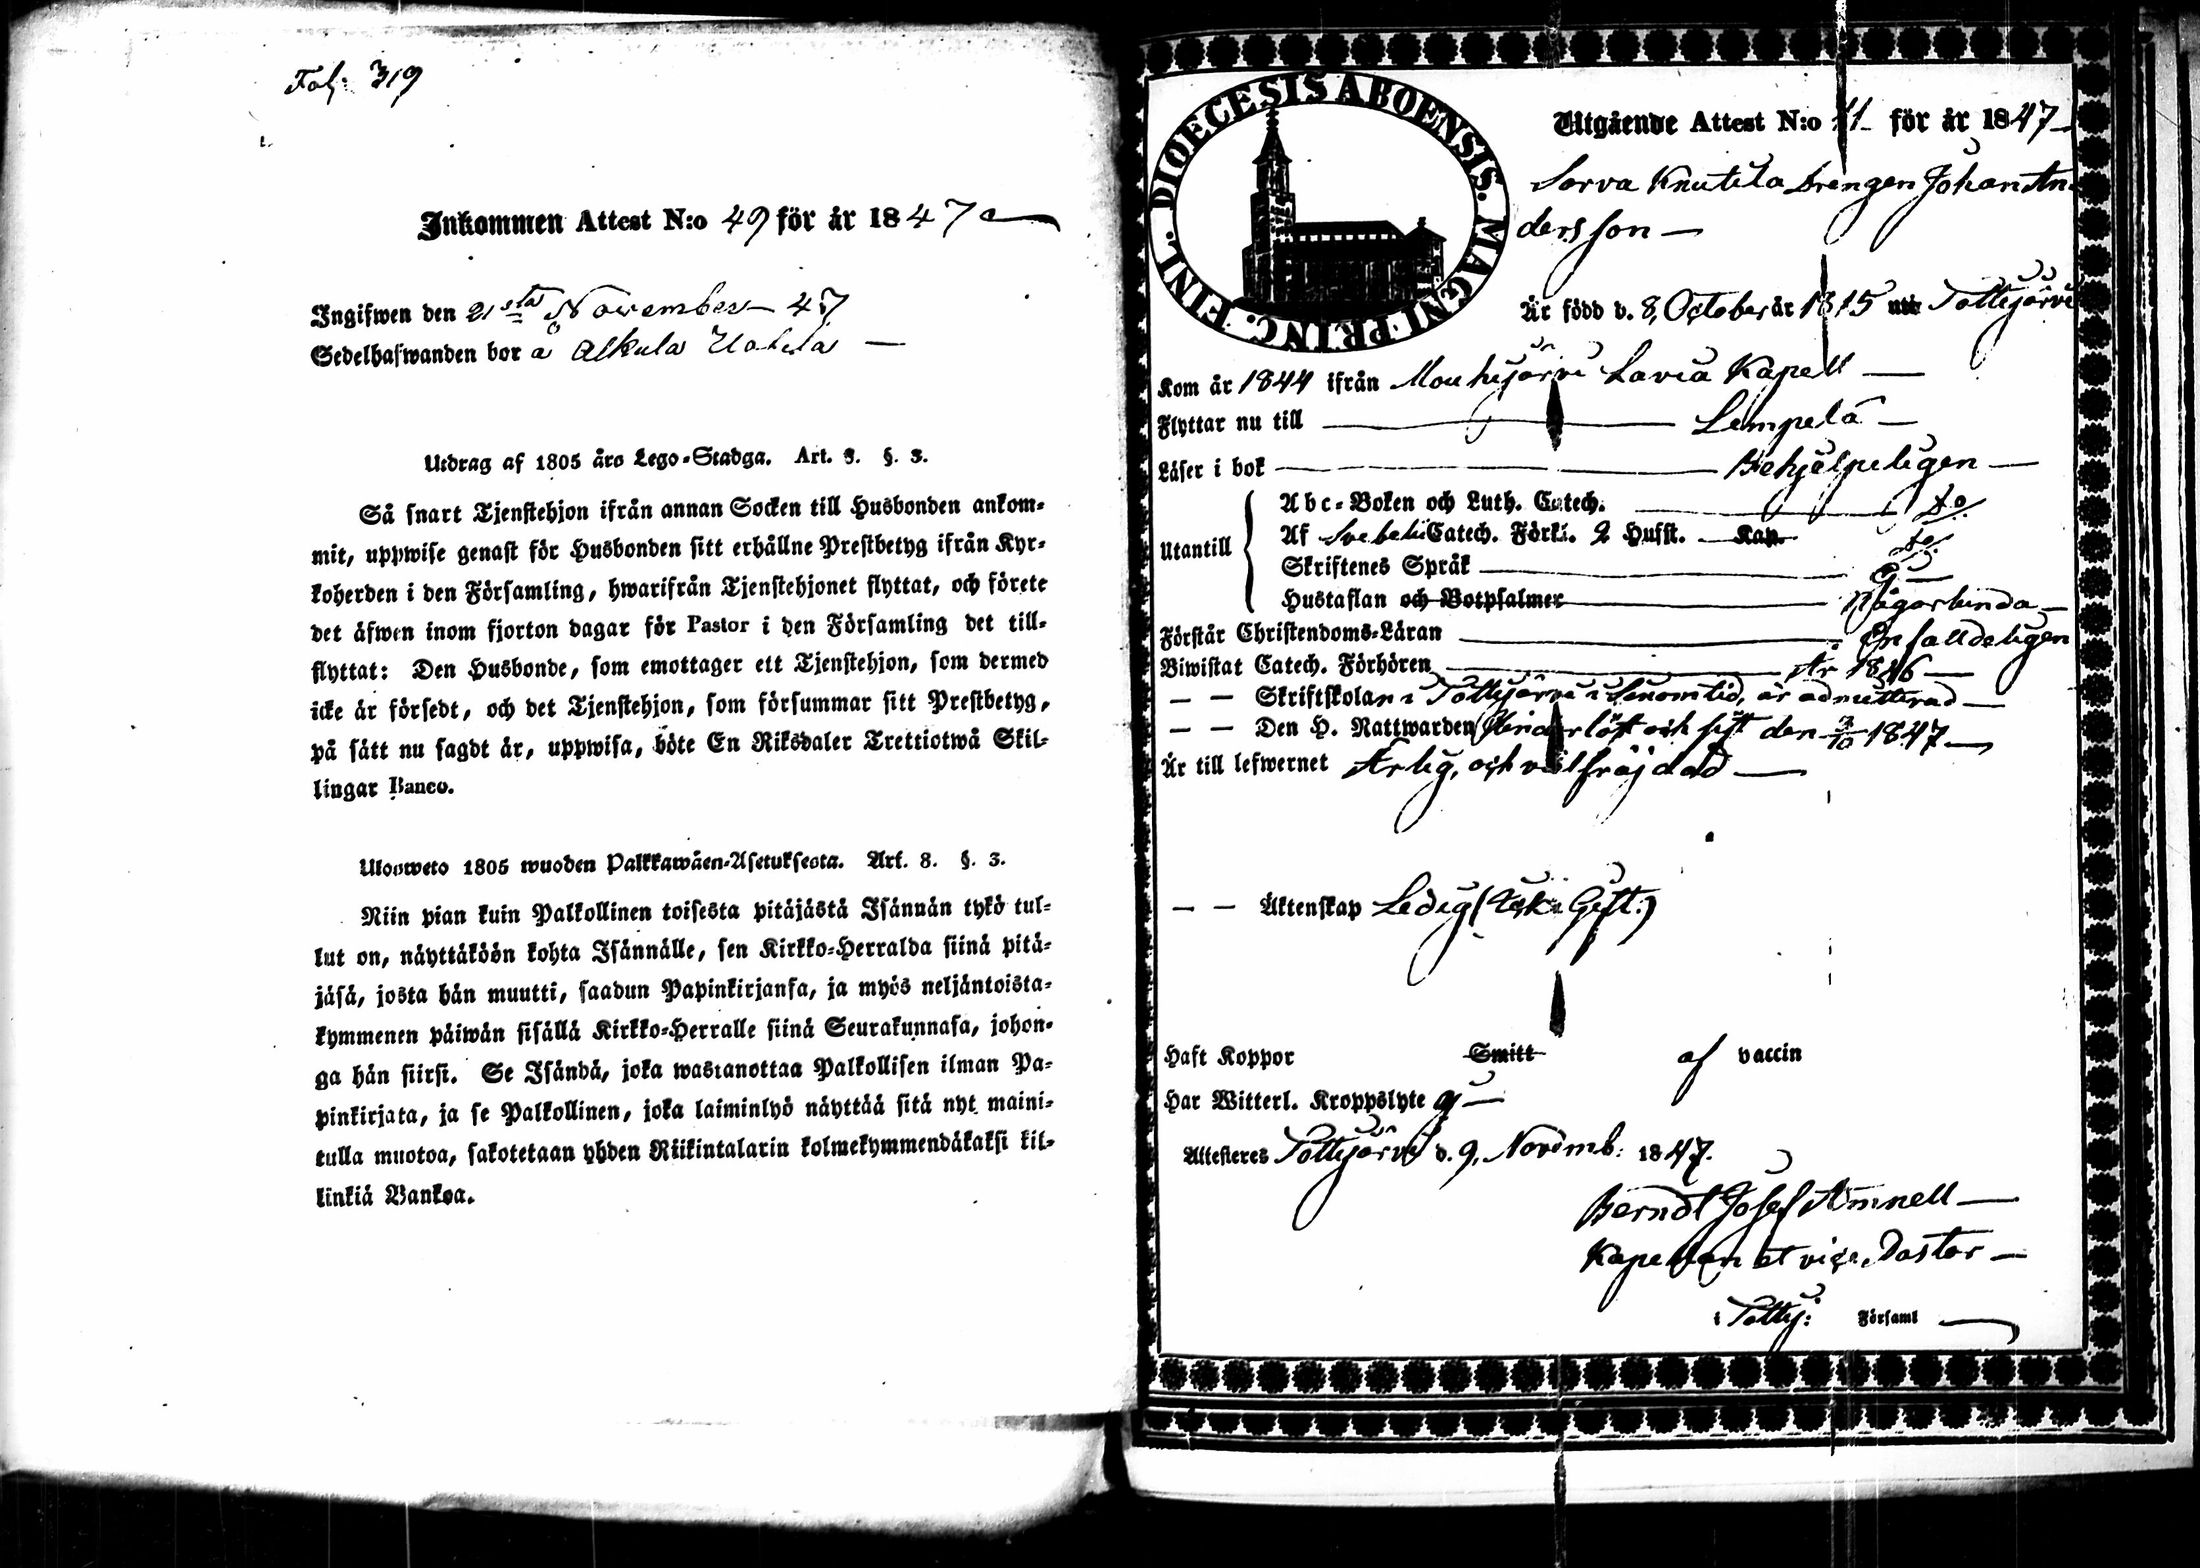 Fol: 319
Inkommen Attest N:o 49 för år 1847
Ingifwen den 21sta November 47
Sedelhafwanden bor å Alkula Uotila
Utdrag af 1805 års Lego-Stadga. Art. 8. §. 3.
Så snart Tjenstehjon ifrån annan Socken till Husbonden ankom-
mit, uppwise genast för Husbonden sitt erhållne Prestbetyg ifrån Kyr-
koherden i den Församling, hwarifrån Tjenstehjonet flyttat, och förete
det äfwen inom fjorton dagar för Pastor i den Församling det till-
flyttat: Den Husbonde, som emottager ett Tjenstehjon, som dermed
icke är försedt, och det Tjenstehjon, som försummar sitt Prestbetyg,
på sätt nu sagdt är, uppwisa, böte En Riksdaler Trettiotwå Skil-
lingar Banco.
Ulosweto 1805 wuoden Palkkawäen-Asetuksesta. Art. 8. §. 3.
Niin pian kuin Palkollinen toisesta pitäjästä Isännän tykö tul-
lut on, näyttäköön kohta Isännälle, sen Kirkko-Herralda siinä pitä-
jäsä, josta hän muutti, saadun Papinkirjansa, ja myös neljäntoista-
kymmenen päiwän sisällä Kirkko-Herralle siinä Seurakunnasa, johon-
ga hän siirsi. Se Isändä, joka wastanottaa Palkollisen ilman Pa-
pinkirjata, ja se Palkollinen, joka laiminlyö näyttää sitä nyt maini-
tulla muotoa, sakotetaan yhden Riikintalarin kolmekymmendäkaksi kil-
linkiä Bankoa.
DIOECESIS ABOENSIS. MAGNI PRINC. FINL.
Utgående Attest N:o 41 för år 1847
Sorva Knutila Drengen Johan An-
dersson
Är född d. 8 October år 1815 uti Tottijärvi
Kom år 1844 ifrån Mouhijärvi Lavia Kapell
Flyttar nu till Lempälä
Läser i bok Behjelpeligen
Utantill
Abc-Boken och Luth. Catech. do
Af Svebelii Catech. Förkl. 2 Hufst. Kap. do
Skriftenes Språk Ej
Hustaflan och Botpsalmer Någorlunda
Förstår Christendoms-Läran Enfalldeligen
Biwistat Catech. Förhören År 1846
— — Skriftskolan i Tottijärvi i sinom tid, är admitterad
— — Den H. Nattwarden Hinderlöst och sist den 3/10 1847
Är till lefwernet Ärlig, och välfräjdad
— — Äktenskap Ledig (Icke Gift.)
Haft Koppor Smitt af vaccin
Har Witterl. Kroppslyte Ej
Attesteres Tottijärvi d. 9. Novemb: 1847.
Berndt Josef Amnell
Kapellan et vice Pastor
i Tottij: Församl